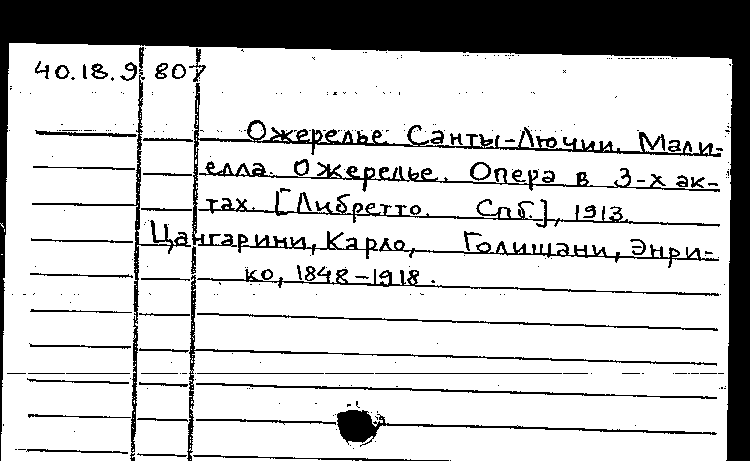 40.18.9.807
Ожерелье Санты-Лючии. Мали-
елла. Ожерелье. Опера в 3-х ак-
тах. [Либретто. Спб.], 1913.
Цангарини, Карло, Голишани, Энри-
ко, 1848-1918.